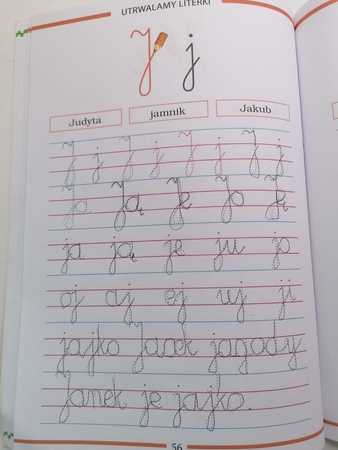 UTRWALAMY LITERKI
J j
Judyta jamnik Jakub
J j J j J j J j
Ja Ją Je Jo Ję
ja ją je ju jo
oj aj ej uj ji
jajko Jacek jagody
Janek je jajko.
56